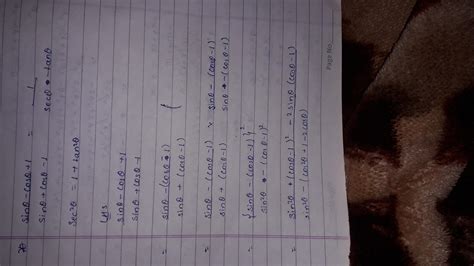 Page No.
20 sinθ-cosθ+1 = 1
sinθ+cosθ-1 secθ-tanθ
sec²θ = 1+tan²θ
LHS
sinθ-cosθ+1
sinθ+cosθ-1
= sinθ-(cosθ-1)
sinθ+(cosθ-1)
= sinθ-(cosθ-1) × sinθ-(cosθ-1)
sinθ+(cosθ-1) sinθ-(cosθ-1)
= {sinθ-(cosθ-1)}²
sin²θ-(cosθ-1)²
= sin²θ+(cosθ-1)²-2sinθ(cosθ-1)
sin²θ-(cos²θ+1-2cosθ)